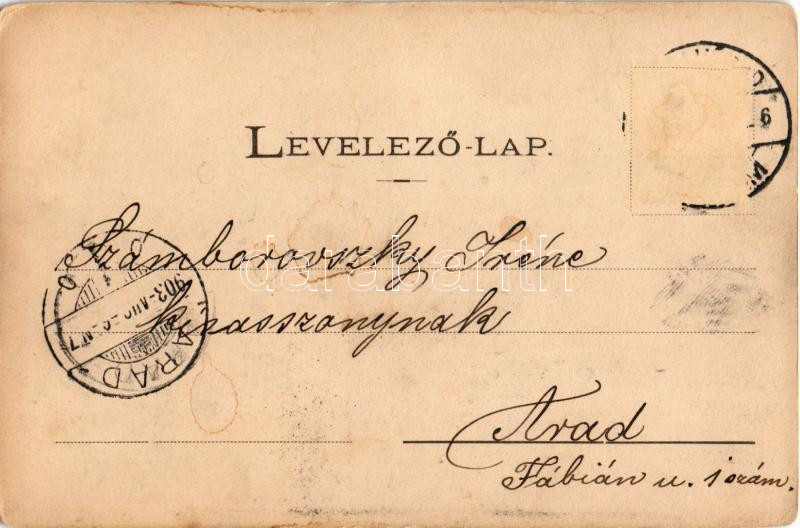 LEVELEZŐ-LAP.
6
Számborovszky Iréne
kisasszonynak
903 AUG
ARAD
Arad
Fábián u. 1 szám.
darabanth